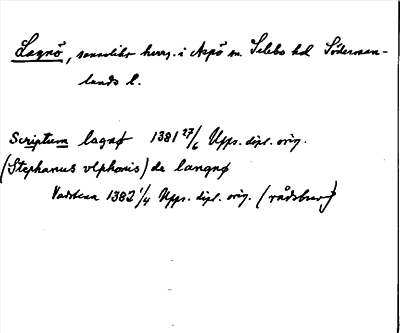 Lagnö, sensolibr herrg. i Aspö sn. Selebo hd Söderman-
lands l.
Scriptum lagnø 1381 27/6 Upps. dipl. orig.
(Stephanus vlphonis) de langnø
Vadstena 1382 1/4 Upps. dipl. orig. (rådsbrev)